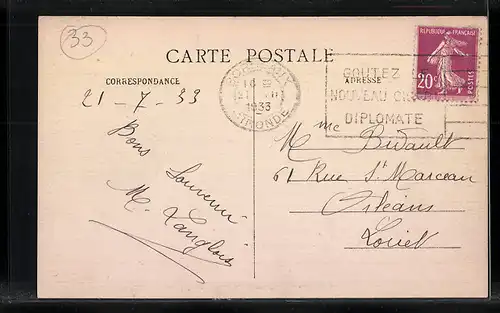 33
CARTE POSTALE
CORRESPONDANCE
ADRESSE
RÉPUBLIQUE FRANÇAISE
20c
POSTES
1933
GIRONDE
GOUTEZ
NOUVEAU
DIPLOMATE
21-7-33
Bons Souvenir
M. Langlois
Mme Bidault
61 Rue St Marceau
Orléans
Loiret